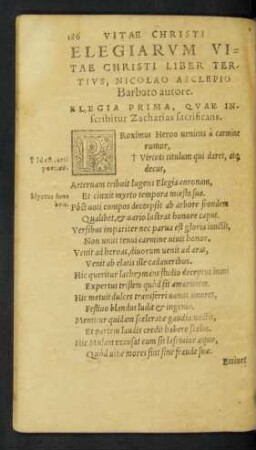 186 VITAE CHRISTI
ELEGIARVM VI-
TAE CHRISTI LIBER TER-
TIVS, NICOLAO ASCLEPIO
Barbato autore.
ELEGIA PRIMA, QVAE IN-
scribitur Zacharias sacrificans.
PRoximus Heroo ueniens à carmine
rumor,
† Vireis titulum qui daret, atq;
decus,
Aeternam tribuit lugens Elegia coronam,
Et cinxit myrto tempora mœsta suæ.
Pòst uoti compos decerpsit ab arbore frondem
Qualibet, & uario lustrat honore caput.
Versibus impariter nec parua est gloria iunctis,
Non unus tenui carmine uiuit honor.
Venit ad heroas, diuorum uenit ad aras,
Venit ab elatis ille cadaueribus.
Hic queritur lachrymans studio deceptus inani
Expertus tristem quàm sit amarum.
Hic metuit dulces transferri uentus amores,
Festiuo blandus ludit & ingenio.
Mentitur quidam scelerate gaudia noctis,
Et partem laudis credit habere scelus.
Hic Musam excusat cum sit lasciuior æquo,
Quòd uitæ mores sint sine fraude suæ.
Eniuet